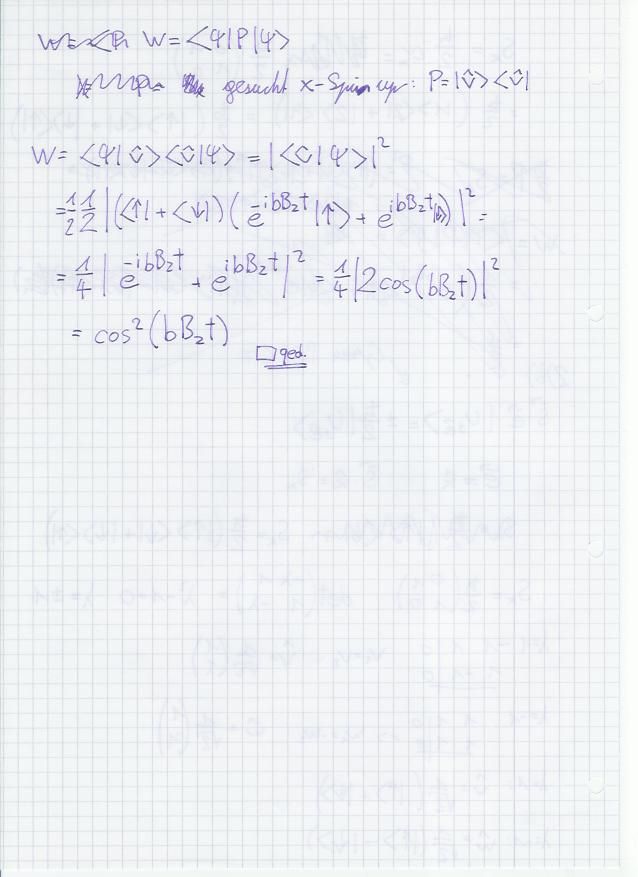 W = ⟨Ψ|P|Ψ⟩
gesucht x-Spin up: P=|û⟩⟨û|
W = ⟨Ψ|û⟩⟨û|Ψ⟩ = |⟨û|Ψ⟩|²
= 1/2 1/2 |(⟨↑| + ⟨↓|)(e^{-ibB₂t}|↑⟩ + e^{ibB₂t}|↓⟩)|² =
= 1/4 |e^{-ibB₂t} + e^{ibB₂t}|² = 1/4 |2cos(bB₂t)|²
= cos²(bB₂t)
□ qed.